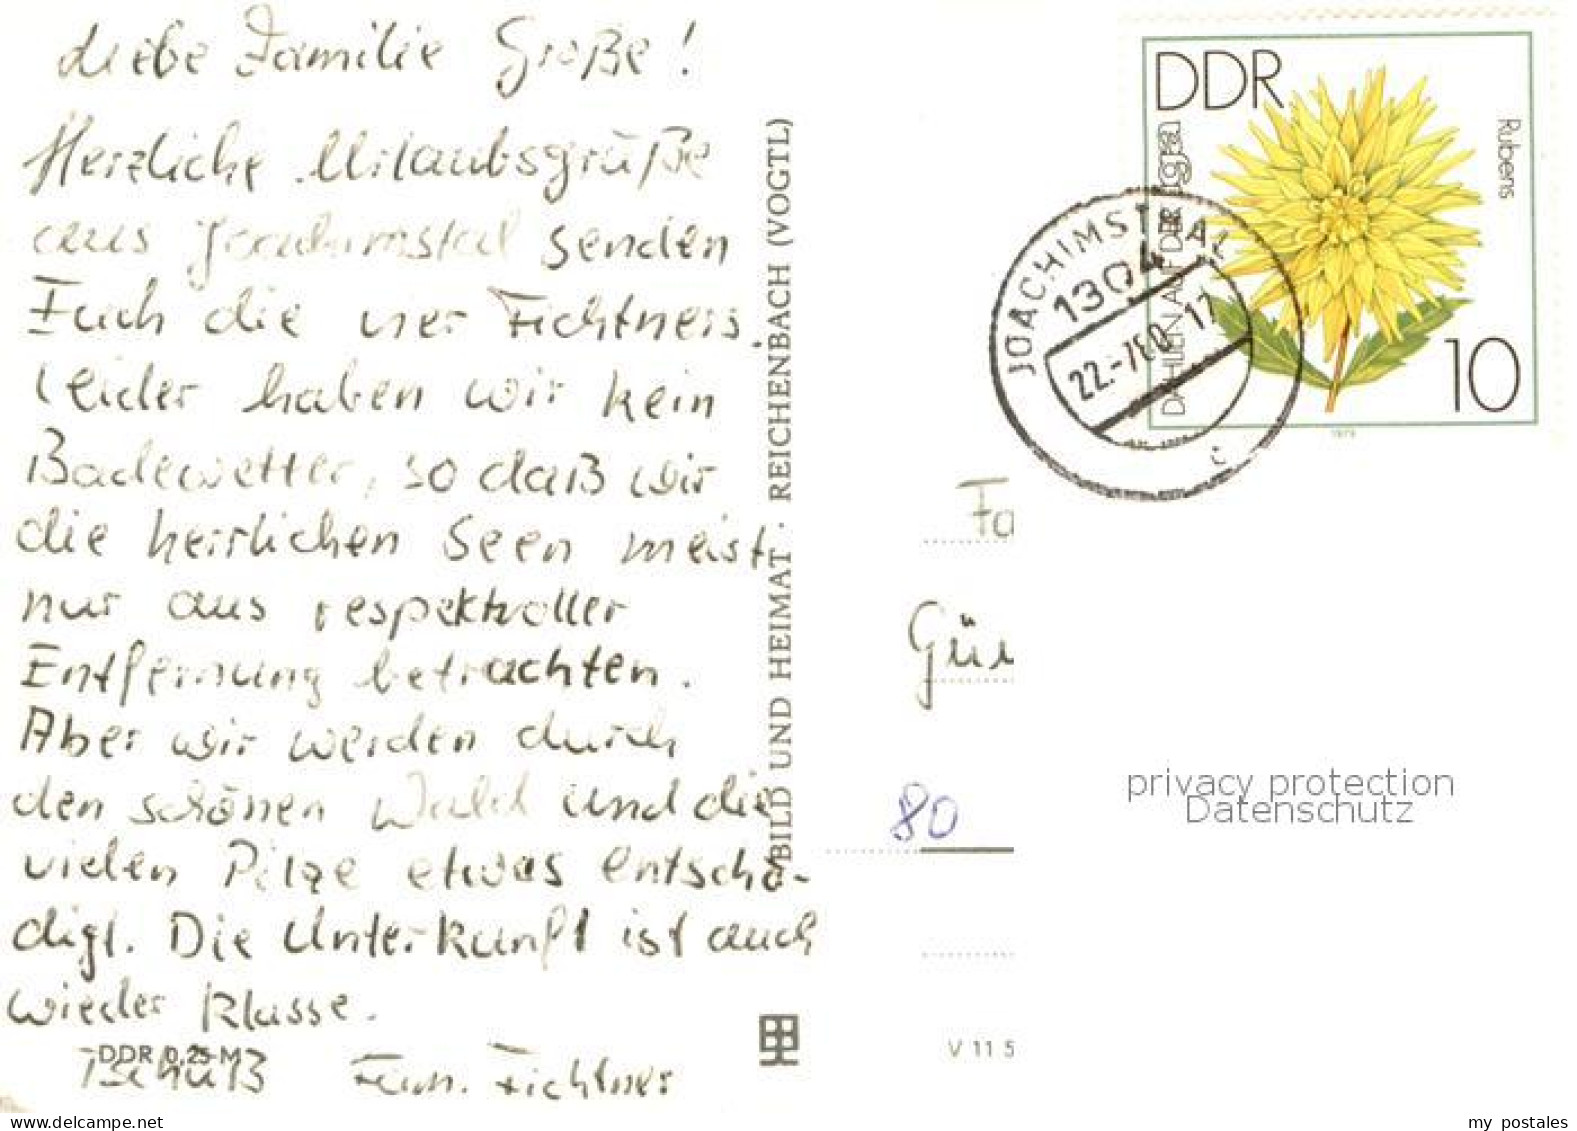 Liebe Familie Große!
Herzliche Urlaubsgrüße
aus Joachimstal senden
Euch die vier Fichtners.
Leider haben wir kein
Badewetter, so daß wir
die herrlichen Seen meist
nur aus respektvoller
Entfernung betrachten.
Aber wir werden durch
den schönen Wald und die
vielen Pilze etwas entschä-
digt. Die Unterkunft ist auch
wieder Klasse.
Tschüß Fam. Fichtner
DDR 0,25 M
BILD UND HEIMAT REICHENBACH (VOGTL)
V 11 5
DDR
DAHLIEN AUF DER iga
Rubens
10
1979
JOACHIMSTHAL
1304
22.-7.80.17
c
Fa
Gü
80
privacy protection
Datenschutz
www.delcampe.net
my_postales